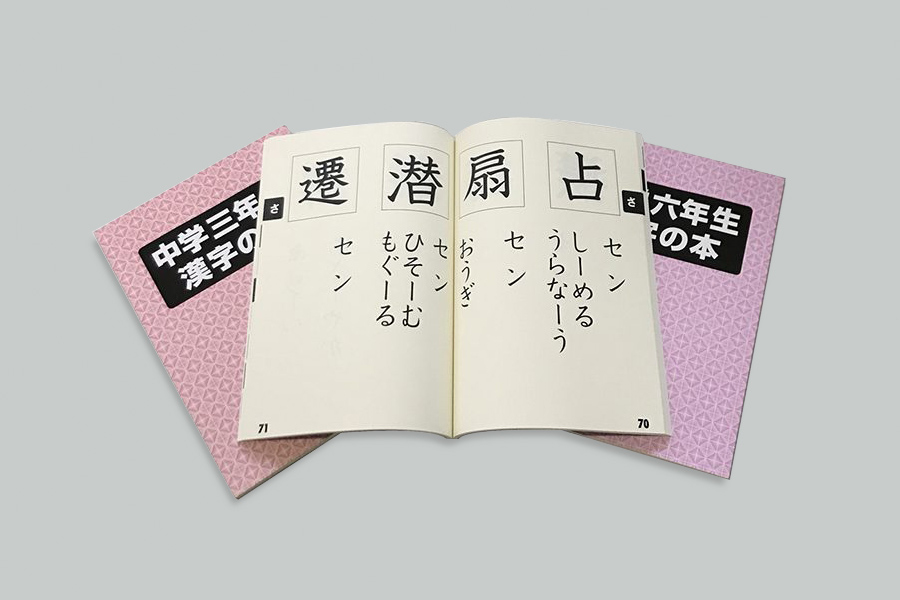 占
セン
しーめる
うらなーう
扇
セン
おうぎ
さ
70
潜
セン
ひそーむ
もぐーる
遷
セン
さ
71
中学三年
漢字の
六年生
字の本